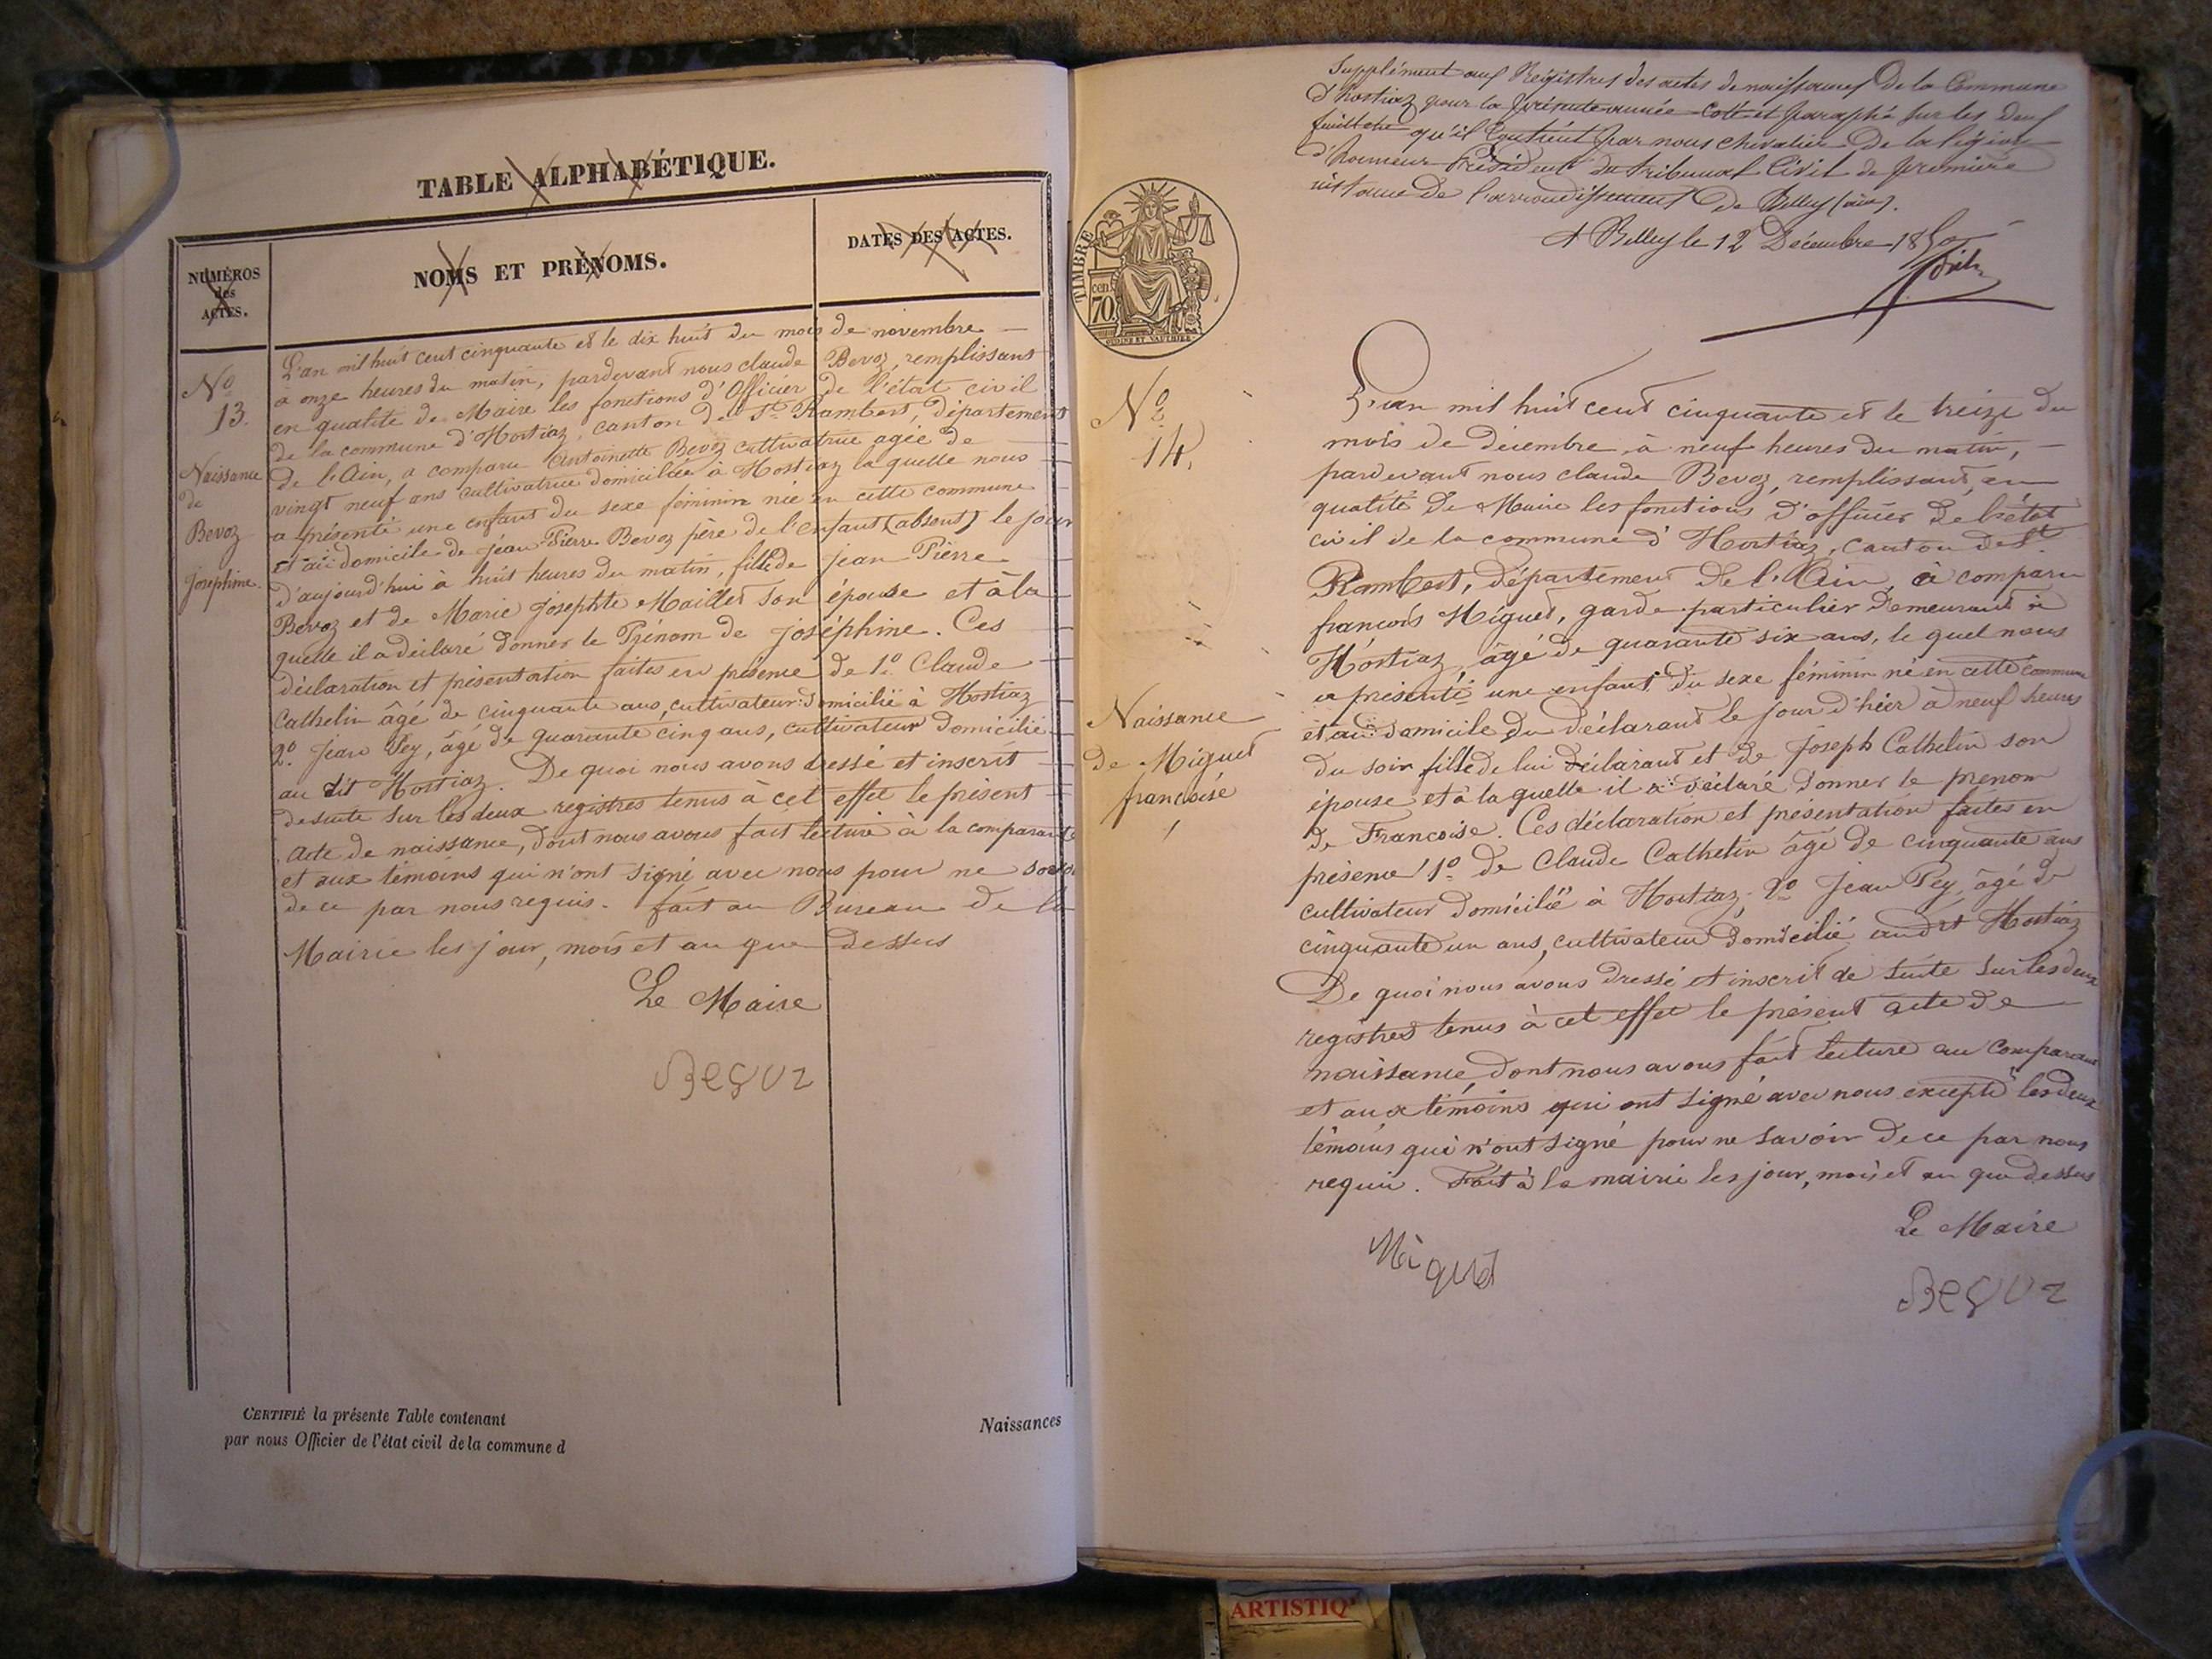 TABLE ALPHABÉTIQUE.
NUMÉROS
des
ACTES.
NOMS ET PRÉNOMS.
DATES DES ACTES.
No
13.
Naissance
de
Bevoz
Joséphine.
L'an mil huit cent cinquante et le dix huit du mois de novembre
à onze heures du matin, pardevant nous claude Bevoz, remplissant
en qualité de Maire les fonctions d'Officier de l'état civil
de la commune d'Hostiaz, canton de St Rambert, département
de l'Ain, a comparu Antoinette Bevoz cultivatrice agée de
vingt neuf ans cultivatrice domiciliée à Hostiaz la quelle nous
a présenté une enfant du sexe féminin née en cette commune
et au domicile de jean Pierre Bevoz père de l'enfant (absent) le jour
d'aujourd'hui à huit heures du matin, fille de jean Pierre
Bevoz et de Marie Josephte Maillet son épouse et à la
quelle il a déclaré donner le Prénom de joséphine. Ces
déclaration et présentation faites en présence de 1o Claude
Cathelin âgé de cinquante ans, cultivateur domicilié à Hostiaz
2o Jean Pey, âgé de quarante cinq ans, cultivateur domicilié
au dit Hostiaz. De quoi nous avons dressé et inscrit
desuite sur les deux registres tenus à cet effet le présent
acte de naissance, dont nous avons fait lecture à la comparante
et aux témoins qui n'ont signé avec nous pour ne
de ce par nous requis. fait au Bureau de la
Mairie les jour, mois et an que dessus
Le Maire
Bevoz
CERTIFIÉ la présente Table contenant
par nous Officier de l'état civil de la commune d
Naissances
Supplément aux Registres des actes de naissances De la Commune
d'hostiaz pour la présente année coté et paraphé sur les deux
feuillets qu'il contient par nous chevalier De la légion
d'honneur Président du tribunal Civil de première
instance De l'arrondissement De Belley (ain).
A Belley le 12 Décembre 1850
TIMBRE
70 cen.
OUDINÉ ET VAUTHIER
No
14.
Naissance
de Miguet
françoise
L'an mil huit cent cinquante et le treize du
mois de décembre, à neuf heures du matin,
pardevant nous claude Bevoz, remplissant, en
qualité de Maire les fonctions d'officier de l'état
civil de la commune d'Hostiaz, canton de St
Rambert, département de l'Ain, a comparu
françois Miguet, garde particulier demeurant à
Hostiaz, âgé de quarante six ans, le quel nous
a présenté une enfant du sexe féminin né en cette commune
et au domicile du déclarant le jour d'hier à neuf heures
du soir fille de lui déclarant et de Joseph Cathelin son
épouse et à la quelle il a déclaré donner le prenom
de Francoise. Ces déclaration et présentation faites en
présence 1o de Claude Cathelin âgé de cinquante ans
cultivateur domicilié à Hostiaz, 2o Jean Pey, âgé de
cinquante un ans, cultivateur domicilié audit Hostiaz
De quoi nous avons dressé et inscrit de suite sur les deux
registres tenus à cet effet le présent acte de
naissance, dont nous avons fait lecture au comparant
et aux témoins qui ont signé avec nous excepté les deux
témoins qui n'ont signé pour ne savoir de ce par nous
requis. Fait à la mairie les jour, mois et an que dessus
Le Maire
Miguet
Bevoz
ARTISTIQ'